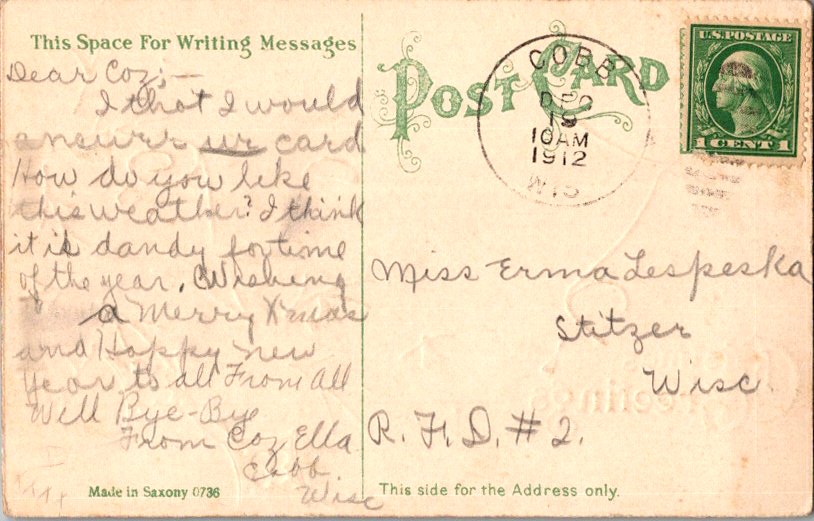 This Space For Writing Messages
Dear Coz;—
I that I would
answer ur card
How do you like
this weather? I think
it is dandy for time
of the year. Wishing
a Merry Xmas
and Happy new
year to all From all
Well Bye-Bye
From Coz Ella
Cobb
Wisc
Made in Saxony 0736
POST CARD
COBB
DEC
19
10AM
1912
WIS
U.S. POSTAGE
1 CENT 1
Miss Erma Lespeska
Stitzer
Wisc.
R. F. D. # 2.
This side for the Address only.